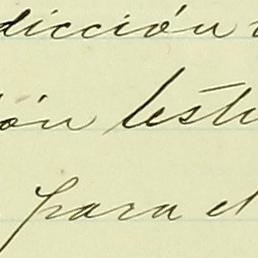 dicción
ón testi
para el